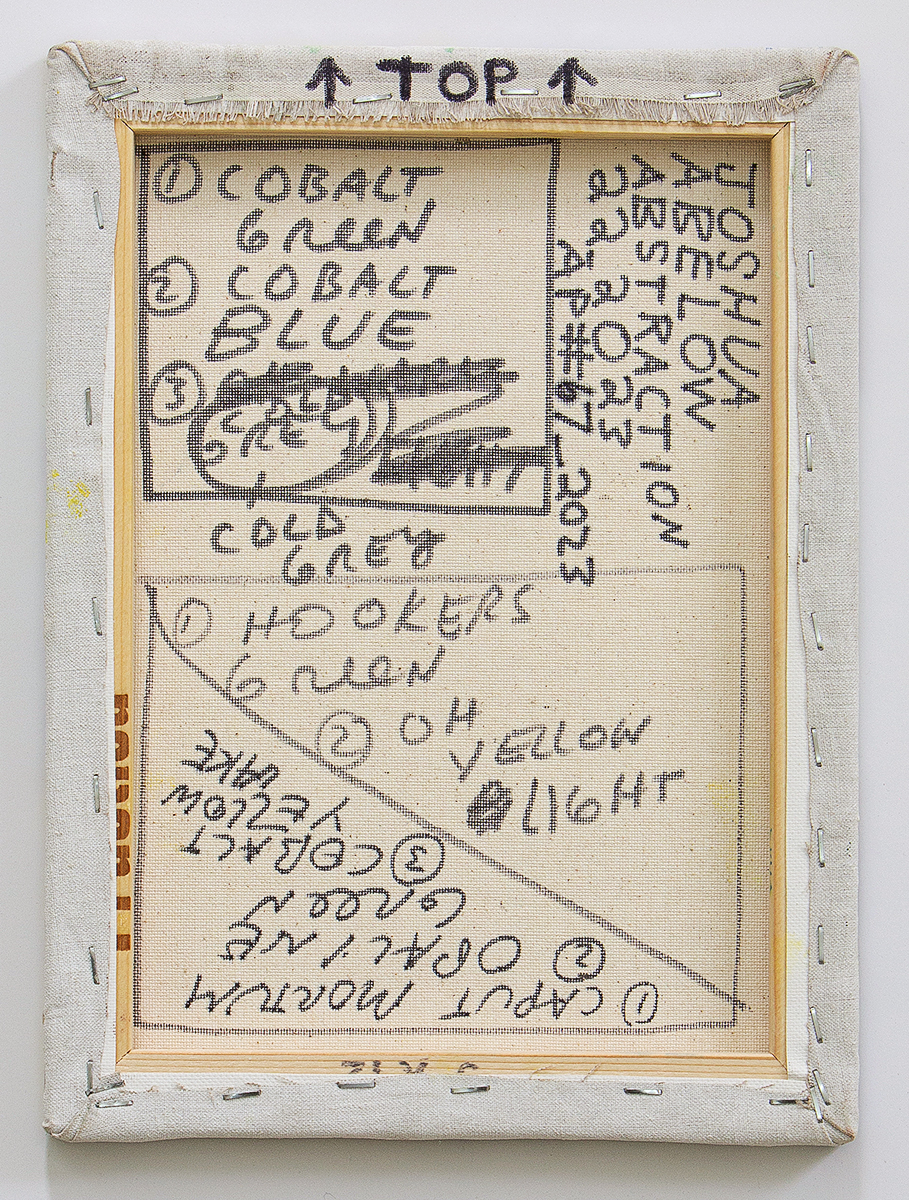 ↑ TOP ↑
① COBALT
GREEN
② COBALT
BLUE
③
COLD
GREY
COLD
GREY
JOSHUA
ABELOW
ABSTRACTION
2023
AP#67_2023
① HOOKERS
GREEN
② OH
YELLOW
LIGHT
① CAPUT MORTUM
② OPALINE
GREEN
③ COBALT
YELLOW
LAKE